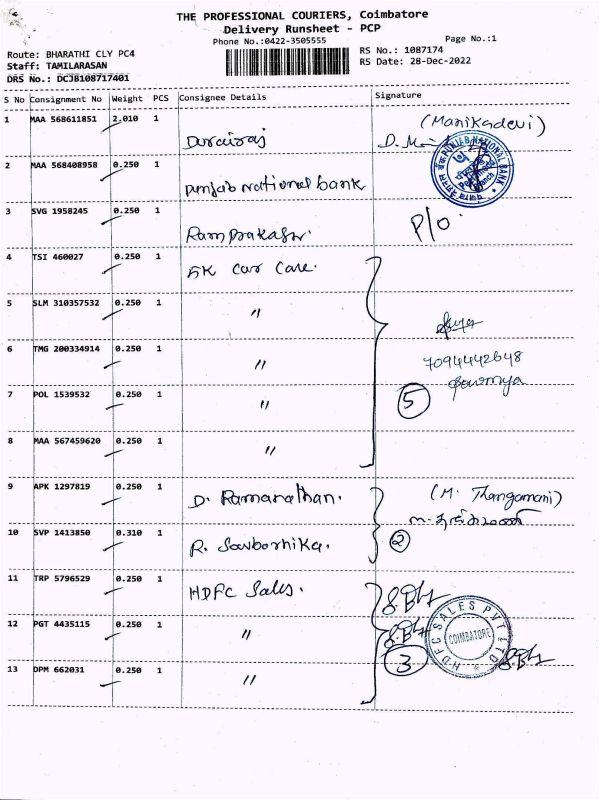 THE PROFESSIONAL COURIERS, Coimbatore
Delivery Runsheet - PCP
Phone No.:0422-3505555
Page No.:1
Route: BHARATHI CLY PC4
RS No.: 1087174
Staff: TAMILARASAN
RS Date: 28-Dec-2022
DRS No.: DCJB108717401
S No Consignment No Weight PCS Consignee Details Signature
1 MAA 568611851 2.010 1 Durairaj (Manikadevi)
2 MAA 568408958 0.250 1 punjab national bank
PUNJAB NATIONAL BANK
3 SVG 1958245 0.250 1 Ramprakash. P/o.
4 TSI 460027 0.250 1 5K Car Care.
5 SLM 310357532 0.250 1 "
6 TMG 200334914 0.250 1 "
7094442648
Sowmya
7 POL 1539532 0.250 1 " 5
8 MAA 567459620 0.250 1 "
9 APK 1297819 0.250 1 D. Ramanathan. (M. Thangamani)
ம. தங்கமணி
10 SVP 1413850 0.310 1 R. Savbornika. 2
11 TRP 5796529 0.250 1 HDFC Sales.
12 PGT 4435115 0.250 1 "
HDFC SALES PVT LTD
COIMBATORE
13 DPM 662031 0.250 1 " 3